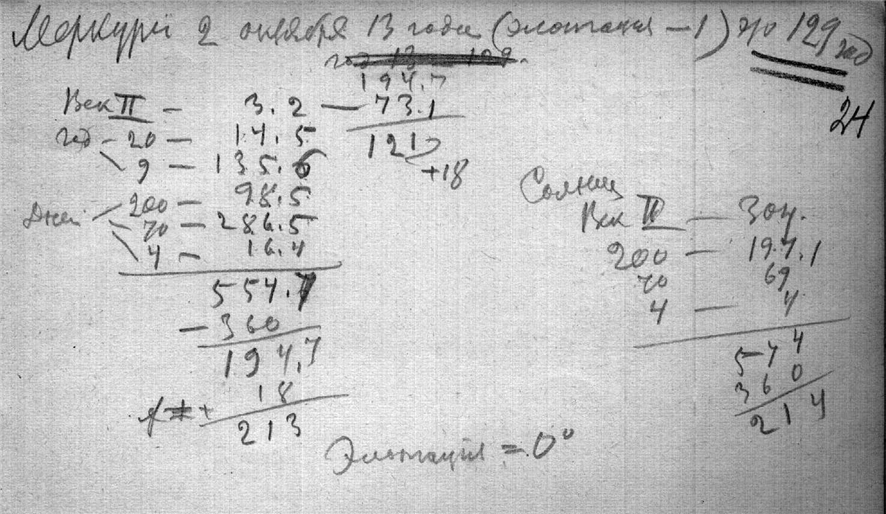 Меркурий 2 октября 13 года (элонгация – 1) до 129 год
год 13 – 129.
24
194,7
Век II – 3.2 – 73.1
год – 20 – 14.5 121
9 – 135.6 +18
200 – 98.5
Дней 70 – 286.5
4 – 16.4
554.7
– 360
194,7
18
+
213
Солнце
Век II – 304.
200 – 197.1
70 69
4 – 4
574
360
214
Элонгация = 0°